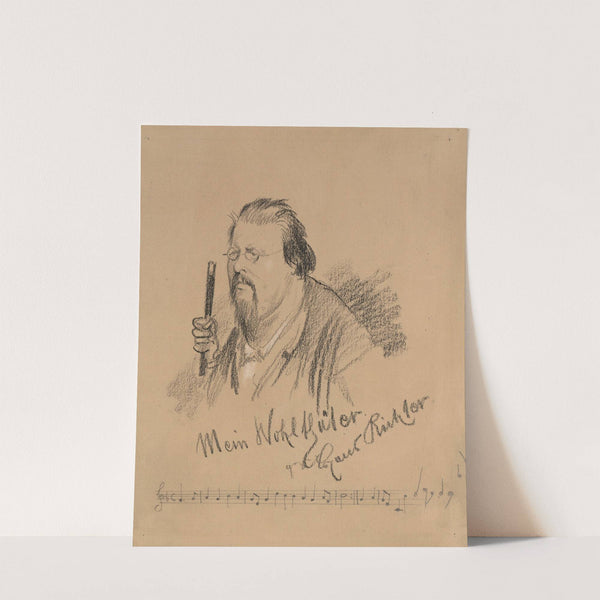 Mein Wohlthäter
Hans Richter